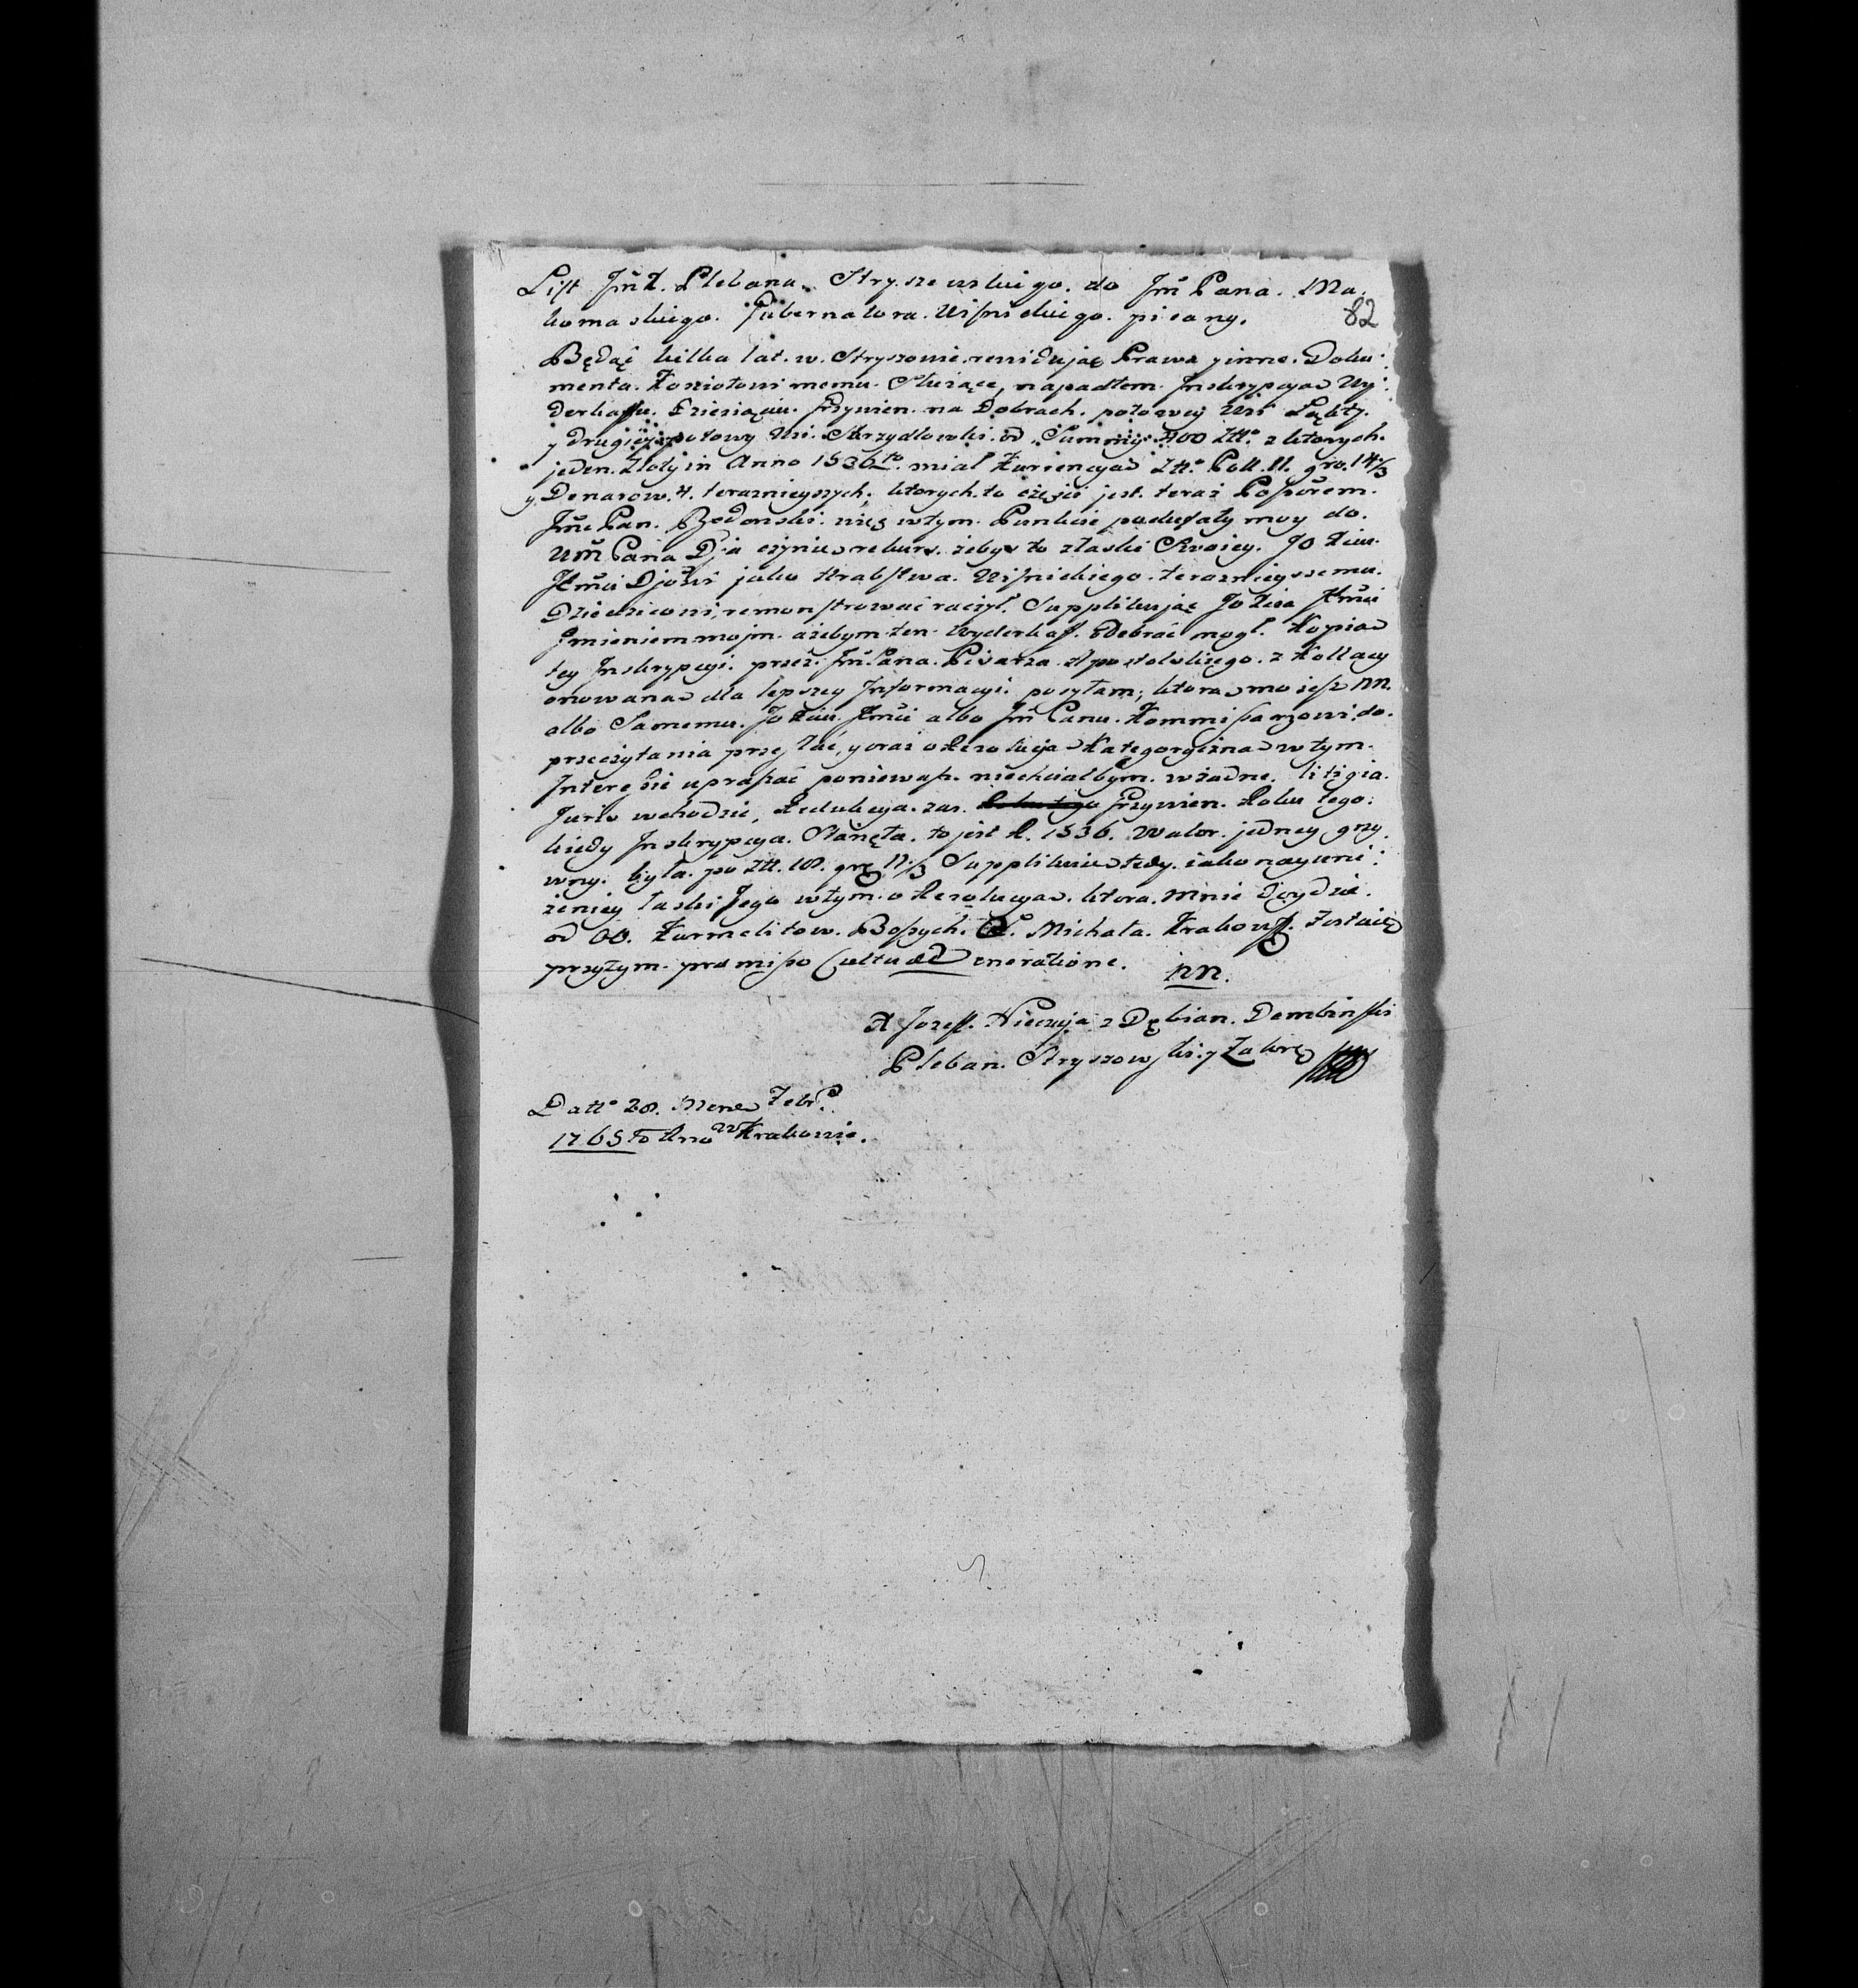 List Jmć X. Plebana. Stryszewskiego. do Jmć Pana. Ma,
komaskiego. Gubernatora. Wiśnickiego. pisany.
82
Będąć kilka lat. w. Stryszowie. rewidując Prawa y inne. Doku:
menta. Kosciołowi memu. Służące, napadłem. Inskrypcyą Wy:
derkaffu. Dziesiąciu. Grzywien. na Dobrach. połowy Wsi Łąkty.
y drugiey połowy Wsi. Skrzydlowski. od. Summy. 400 Złł. z ktorych.
jeden. Złoty in Anno 1536to. miał Kurencyą Złł. Poll. 11. gro. 14⅓
y Denarow. 4. teraznieyszych; ktorych. to części jest. teraz Possorem.
Jmć Pan. Bzdonski. więc wtym. Punkcie podufały moy do.
Wm̃ Pana Dja czynię rekurs. żebyś to złaski Swoiey. JO Xciu.
Jmći Djowi jako Hrabstwa. Wiśnickiego. teraznieyszemu.
Dziedzicowi, remonstrować raczył. Supplikując JO Xcia Jmći
Imieniem mojm. ażebym ten. Wyderkaf. Odebrać mogł. Kopią
tey Inskrypcyi. przez. Jmć Pana. Pisarza. Apostolskiego. z Kollacy
onowaną dla lepszey Informacyi. posyłam; ktorą możesz nn.
albo Samemu. JO Xciu. Jmći albo Jmć Panu. Kommissarzowi. do.
przeczytania przesłać, y oraz o Rezolucyą Kategoryczną w tym.
Interessie upraszać poniewasz. niechciałbym. w żadne. litigia.
Juris wchodzić, Redukcya. zas. Grzywien. Roku tego:
kiedy Inskrypcya. Stanęła. to jest R. 1536. Walor. jedney grzy
wny. była. po Złł. 18. gro 17⅓ Supplikuię tedy. iako nayuni:
żeniey łaski Jego wtym. o Rezolucyą. ktora. mnie doydzie.
od OO. Karmelitow. Bossych. S. Michała. Krakows. Zostaię
przytym. pro misso Cultu ad Venerationē. nn.
X Jozeff. Nieczuja z Dębian. Dembinski
Pleban. Stryszowski. y Zakrz
Datt: 28. Mense Febr.
1765to Anno w Krakowie.